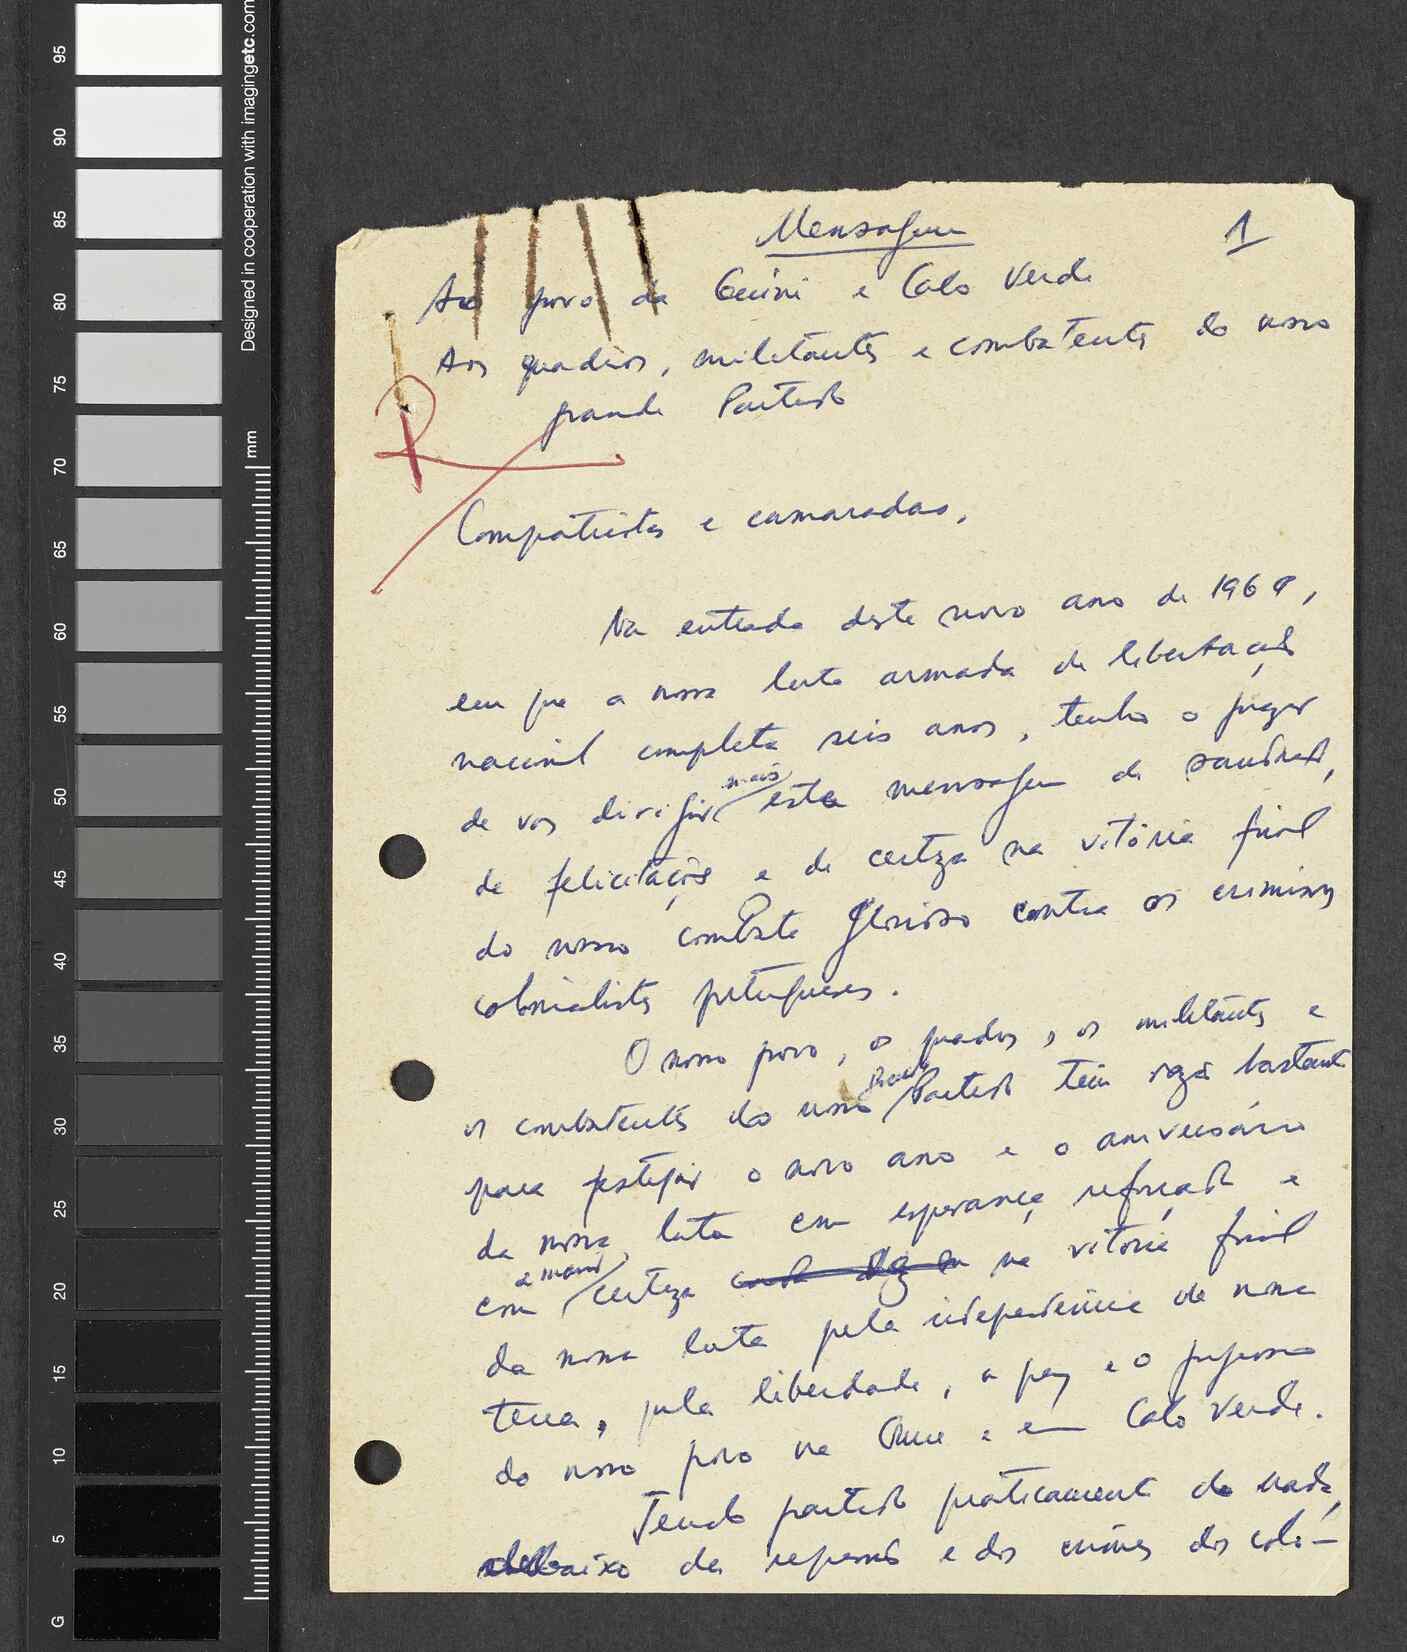 Mensagem
1
Ao povo da Guiné e Cabo Verde
Aos quadros, militantes e combatentes do nosso
grande Partido
Compatriotas e camaradas,
Na entrada deste novo ano de 1969,
em que a nossa luta armada de libertação
nacional completa seis anos, tenho o prazer
de vos dirigir mais esta mensagem de saudação,
de felicitações e de certeza na vitória final
do nosso combate glorioso contra os criminosos
colonialistas portugueses.
O nosso povo, os quadros, os militantes e
os combatentes do nosso grande Partido têm razão bastante
para festejar o novo ano e o aniversário
da nossa luta com esperança reforçada e
com a maior certeza na vitória final
da nossa luta pela independência da nossa
terra, pela liberdade, a paz e o progresso
do nosso povo na Guiné e em Cabo Verde.
Tendo partido praticamente do nada,
debaixo da repressão e dos crimes dos colo-
Designed in cooperation with imagingetc.com
mm
95
90
85
80
75
70
65
60
55
50
45
40
35
30
25
20
15
10
5
G